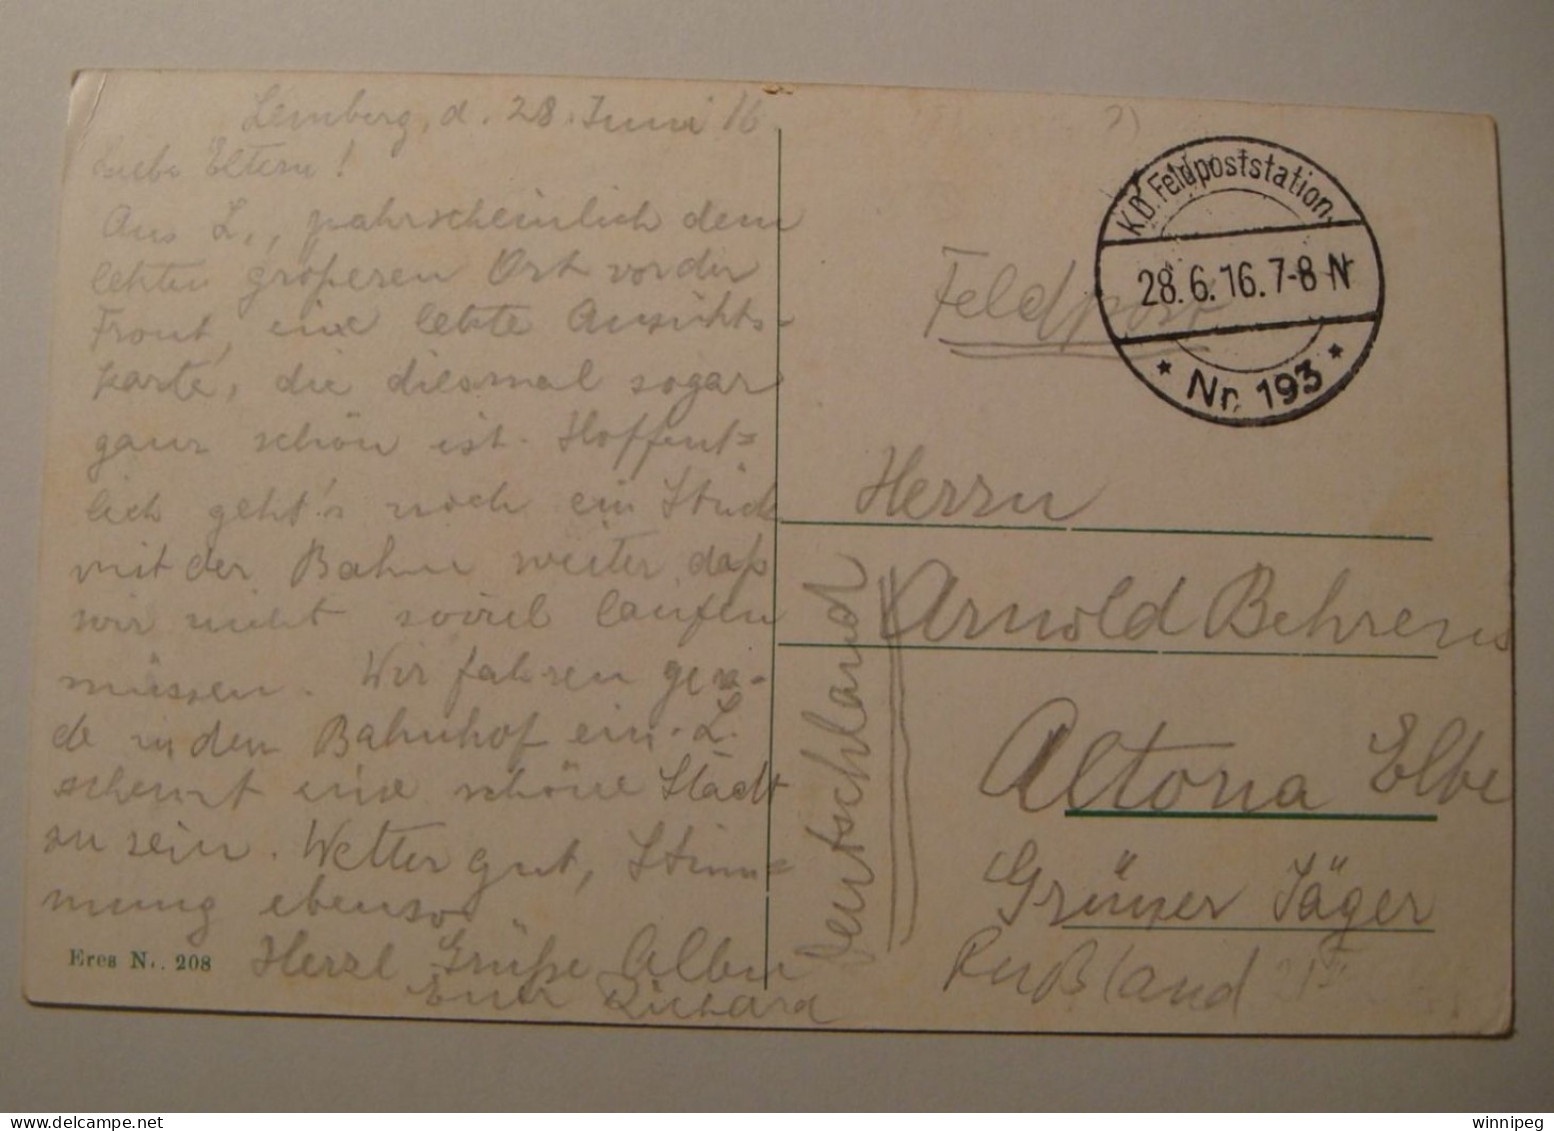 Lemberg, d. 28. Juni 16.
Liebe Eltern!
Aus L., wahrscheinlich dem
letzten größeren Ort vor der
Front, eine letzte Ansichts-
karte, die diesmal sogar
ganz schön ist. Hoffent=
lich geht's noch ein Stück
mit der Bahn weiter, daß
wir nicht soviel laufen
müssen. Wir fahren gera-
de in den Bahnhof ein. L.
scheint eine schöne Stadt
zu sein. Wetter gut, Stim=
mung ebenso.
Herzl. Grüße Allen
Euer Richard
Eres N.. 208
K.B. Feldpoststation.
28.6.16.7-8 N
* Nr. 193 *
Feldpost
Herrn
Arnold Behrens
Altona Elbe
Grüner Jäger
Rußland
Deutschland
winnipeg